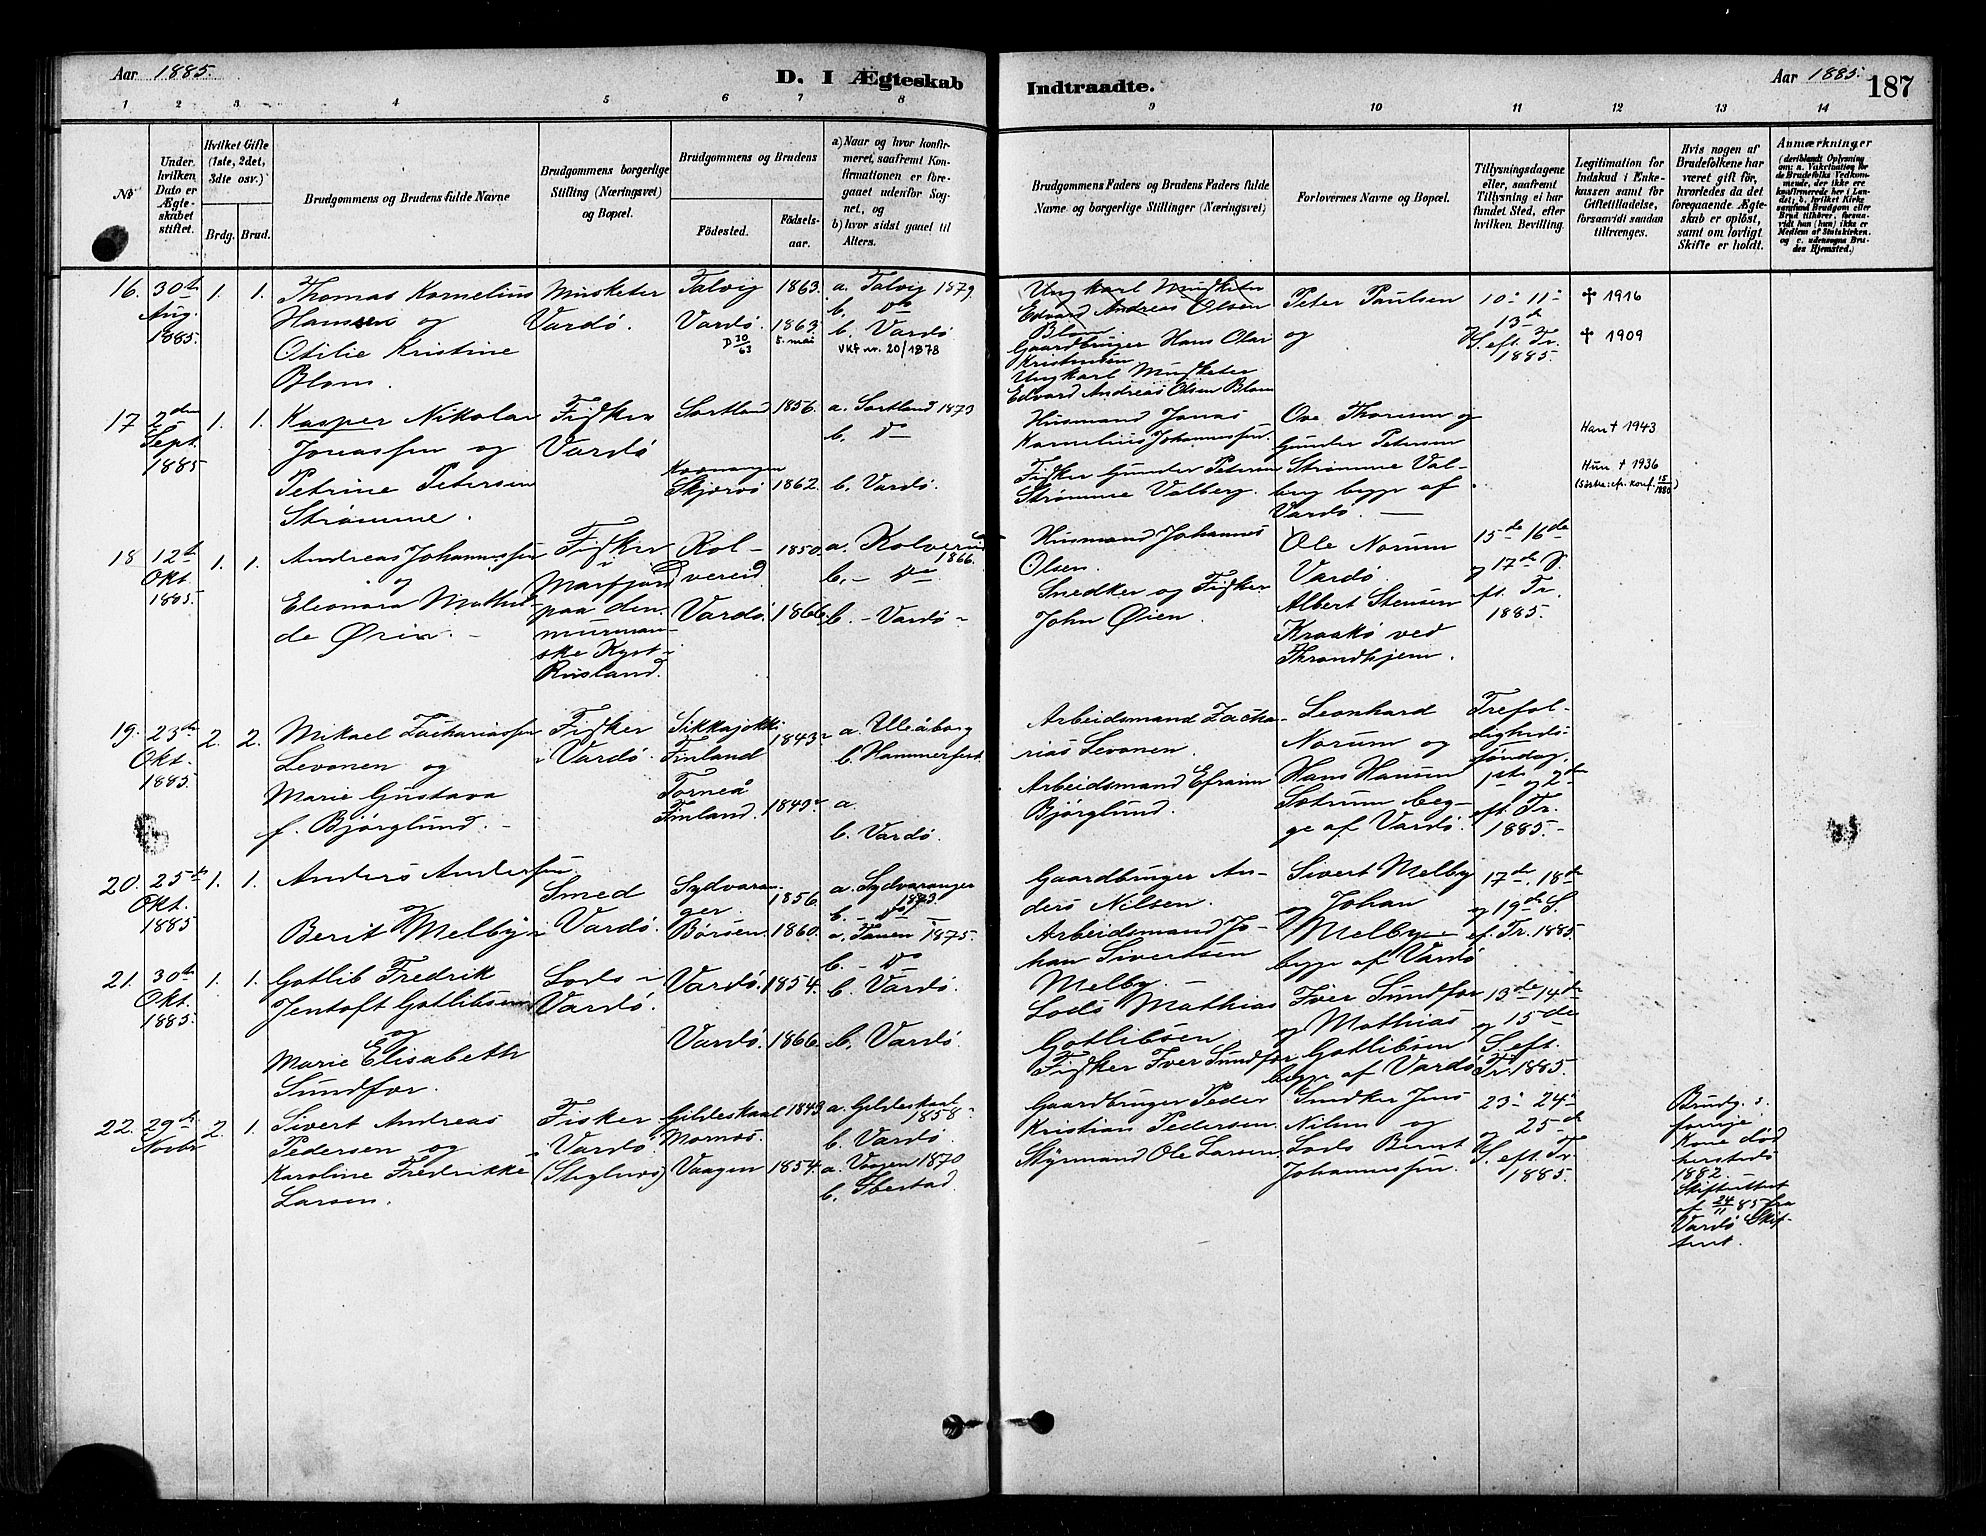 Aar 1885.
D. I Ægteskab
Indtraadte.
Aar 1885.
187
1 2 3 4 5 6 7 8 9 10 11 12 13 14
No
Under hvilken Dato er Ægteskabet stiftet.
Hvilket Gifte (1ste, 2det, 3die osv.)
Brdg. Brud.
Brudgommens og Brudens fulde Navne
Brudgommens borgerlige Stilling (Næringsvei) og Bopæl.
Brudgommens og Brudens
Födested.
Födselsaar.
a) Naar og hvor konfirmeret, saafremt Konfirmationen er foregaaet udenfor Sognet, og
b) hvor sidst gaaet til Alters.
Brudgommens Faders og Brudens Faders fulde Navne og borgerlige Stillinger (Næringsvei)
Forlovernes Navne og Bopæl.
Tillysningsdagene eller, saafremt Tillysning ei har fundet Sted, efter hvilken Bevilling.
Legitimation for Indskud i Enkekassen samt for Giftetilladelse, forsaavidt saadan tiltrænges.
Hvis nogen af Brudefolkene har været gift för, hvorledes da det foregaaende Ægteskab er oplöst, samt om lovligt Skifte er holdt.
Anmærkninger
16. 30te Aug. 1885. 1. 1.
Thomas Kornelius
Hansen og
Otilie Kristine
Blom.
Musketer
Vardö.
Talvig 1863.
Vardö. 1863.
D 30/63 5. mai
a. Talvig 1879.
b. Do
b. Vardö
VKF nr. 20/1878
Ungkarl Musketer
Edvard Andreas Olsen
Blom
Gaardbruger Hans Olai
Kristensen
Ungkarl Musketer
Edvard Andreas Olsen Blom
Peter Paulsen
og
10. 11.
13de
S. eft. Tr.
1885.
✝ 1916
✝ 1909
17 2den Sept. 1885 1. 1.
Kasper Nikolai
Jonassen og
Petrine Petersen
Strømme.
Fisker
Vardö
Sortland 1856.
Kvænangen
Skjervö 1862.
a. Sortland 1873
b. Do
b. Vardö.
Husmand Jonas
Kornelius Johannessen.
Fisker Gunder Petersen
Strømme Valberg.
Ove Thorum og
Gunder Petersen
Strømme Valberg begge af
Vardö.
Han ✝ 1943
Hun ✝ 1936
18 12te Okt. 1885. 1. 1.
Andreas Johannessen
og
Eleonora Mathilde Ørin.
Fisker
i
Marfjord
paa den
murmanske Kyst
Rusland.
Kolvereid 1850.
Vardö. 1866.
a. Kolvereid
1866.
b. - Do
b. - Vardö
Husmand Johannes
Olsen.
Snedker og Fisker
John Øien.
Ole Norum
Vardö.
Albert Stensen
Kraakö ved
Throndhjem.
15de 16de
og 17de S.
eft. Tr.
1885.
19. 23de Okt. 1885. 2. 2.
Mikael Zachariassen
Levonen og
Marie Gustava
f. Bjørglund.
Fisker
i Vardö.
Sikkajokki
Finland 1843
Torneå
Finland. 1849
a. Uleåborg
b. Hammerfest
a.
b. Vardö.
Arbeidsmand Zacharias Levonen.
Arbeidsmand Efraim
Bjørglund.
Leonhard
Norum og
Hans Hansen
Sætrum begge af Vardö.
Trefoldighedssøndag.
1ste og 2den
eft. Tr.
1885.
20. 25de Okt. 1885 1. 1.
Anders Andersen
og
Berit Melby
Smed
i Vardö.
Sydvaranger 1856.
Börsen. 1860.
a. Sydvaranger
1873
b. - Do
a. Tanen 1875.
b. - Do
Gaardbruger Anders Nilsen.
Arbeidsmand Johan Sivertsen
Melby.
Sivert Melby
og Johan
Melby
begge af Vardö
17de. 18de
og 19de S.
ef. Tr. 1885.
21. 30te Okt. 1885. 1. 1.
Gotlib Fredrik
Jentoft Gotlibsen
og
Marie Elisabeth
Sundfor.
Lods
Vardö.
Vardö. 1854.
Vardö. 1866.
b. Vardö.
b. Vardö.
Lods Mathias
Gotlibsen
Fisker Iver Sundfor
Iver Sundfor
og Mathias
Gotlibsen
begge af Vardö
13de 14de
og 15de
S. eft.
Tr. 1885.
22. 29de Novbr 2. 1.
Sivert Andreas
Pedersen og
Karoline Fredrikke
Larsen.
Fisker
i Vardö.
Gildeskaal 1843
Mornæs.
Vaagen 1854.
a. Gildeskaal
1858
b. Vardö
a. Vaagen 1870
b. Ibestad.
Gaardbruger Peder
Kristian Pedersen
Styrmand Ole Larsen
Snedker Jens
Nilsen og
Lods Bernt
Johannessen.
23. 24.
og 25de
S. eft Tr
1885.
Brudg.s
forrige
Kone død
hersteds
1882
Skifteattest
af 24/11 85 fra
Vardö Skifteret.